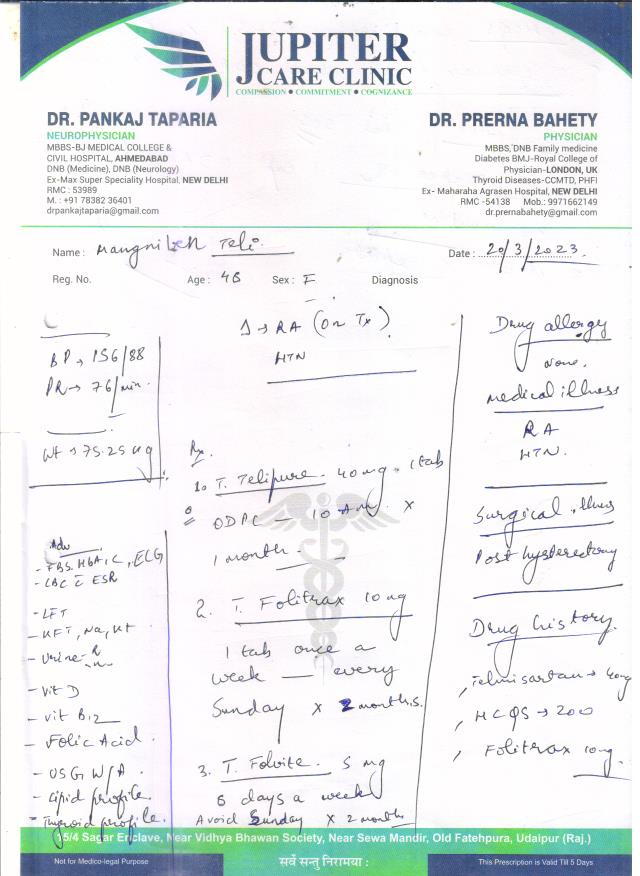 JUPITER
CARE CLINIC
COMPASSION • COMMITMENT • COGNIZANCE
DR. PANKAJ TAPARIA
NEUROPHYSICIAN
MBBS-BJ MEDICAL COLLEGE &
CIVIL HOSPITAL, AHMEDABAD
DNB (Medicine), DNB (Neurology)
Ex-Max Super Speciality Hospital, NEW DELHI
RMC : 53989
M. : +91 78382 36401
drpankajtaparia@gmail.com
DR. PRERNA BAHETY
PHYSICIAN
MBBS, DNB Family medicine
Diabetes BMJ-Royal College of
Physician-LONDON, UK
Thyroid Diseases-CCMTD, PHFI
Ex- Maharaha Agrasen Hospital, NEW DELHI
RMC -54138 Mob.: 9971662149
dr.prernabahety@gmail.com
Name : Teli
Date : 20/3/2023
Reg. No. Age : 48 Sex : F Diagnosis
BP → 156/88
PR → 76/min.
Wt → 75.25 kg
Adv
- FBS, HbA1C, ECG
- CBC c ESR
- LFT
- KFT, Na, K+
- Urine - R
- Vit D
- Vit B12
- Folic Acid.
- USG W/A.
- Lipid profile.
- Thyroid profile.
Δ → RA (On Tx)
HTN
Rx.
1. T. Telipure - 40 mg. 1 tab
ODPC — 10 Am. x
1 month.
2. T. Folitrax 10 mg
1 tab once a
week — every
Sunday x 2 months.
3. T. Folvite. 5 mg
6 days a week
Avoid Sunday x 2 months
Drug allergy
None.
Medical illness
RA
HTN.
Surgical illness
Post hysterectomy
Drug history.
, Telmisartan → 40mg
, HCQS → 200
, Folitrax 10mg.
15/4 Sagar Enclave, Near Vidhya Bhawan Society, Near Sewa Mandir, Old Fatehpura, Udaipur (Raj.)
Not for Medico-legal Purpose
सर्वे सन्तु निरामया :
This Prescription is Valid Till 5 Days